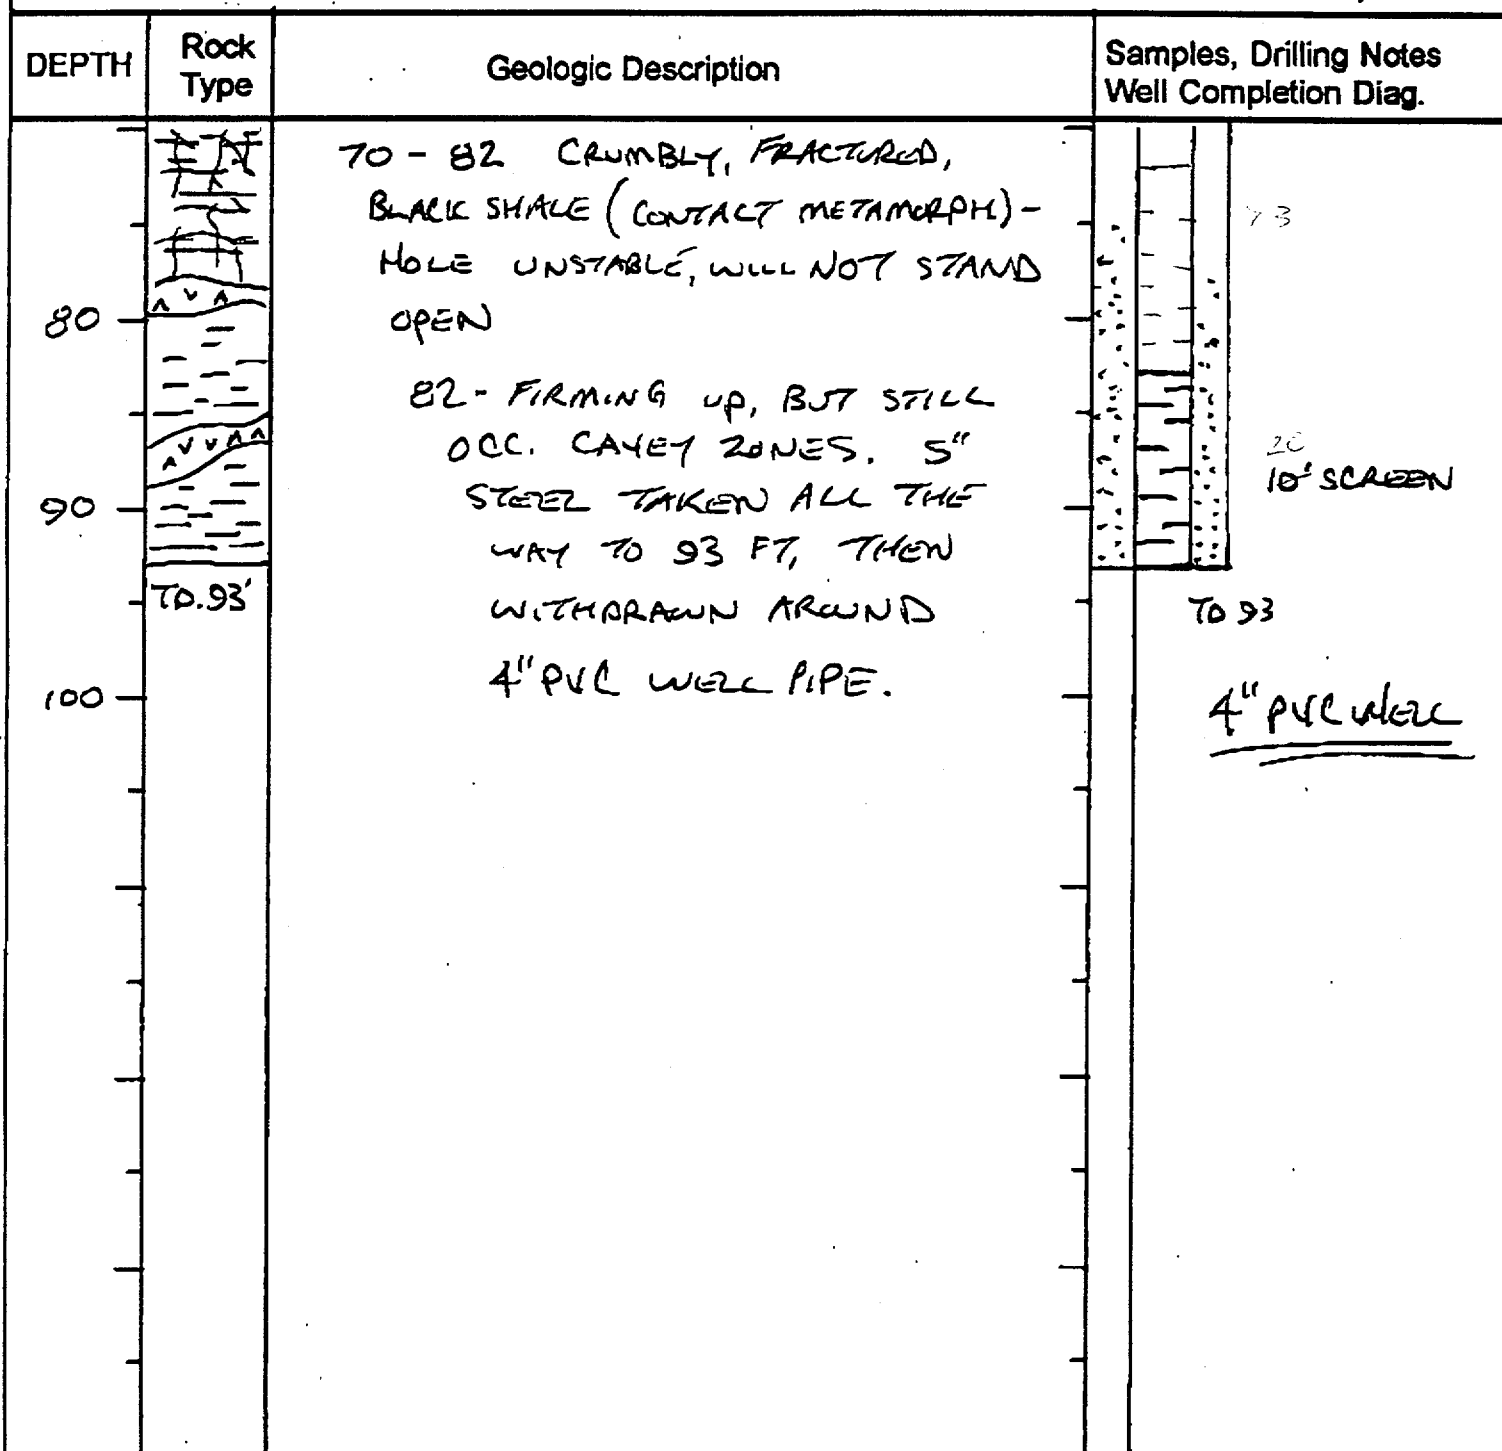 DEPTH
Rock
Type
Geologic Description
Samples, Drilling Notes
Well Completion Diag.
70 - 82 CRUMBLY, FRACTURED,
BLACK SHALE (CONTACT METAMORPH) -
HOLE UNSTABLE, WILL NOT STAND
OPEN
80
82 - FIRMING UP, BUT STILL
OCC. CAVEY ZONES. 5"
STEEL TAKEN ALL THE
WAY TO 93 FT, THEN
WITHDRAWN AROUND
4" PVC WELL PIPE.
90
TD. 93'
100
20
10' SCREEN
TD 93
4" PVC WELL